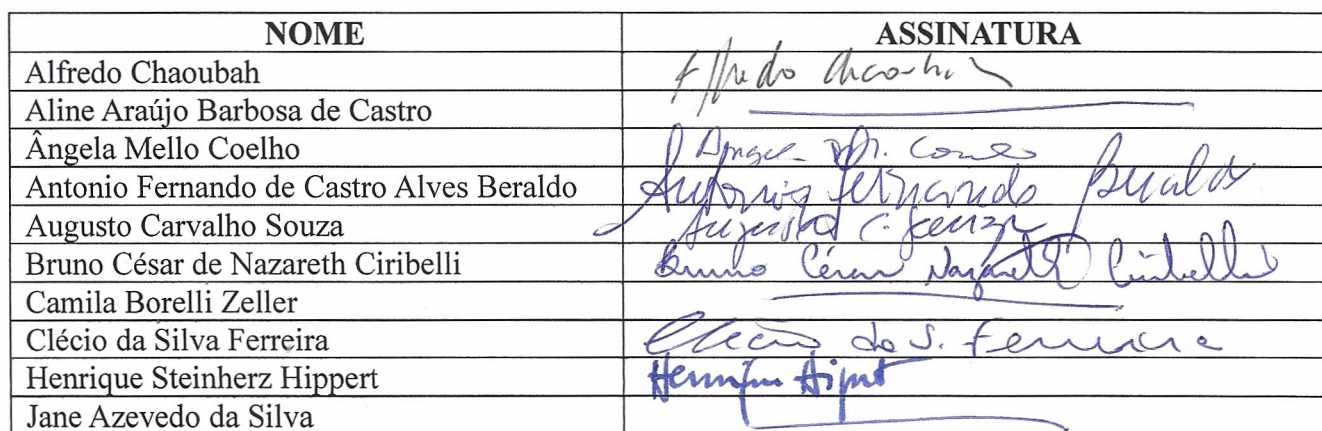 NOME ASSINATURA
Alfredo Chaoubah Alfredo Chaoubah
Aline Araújo Barbosa de Castro
Ângela Mello Coelho Angela M. Coelho
Antonio Fernando de Castro Alves Beraldo Antonio Fernando Beraldo
Augusto Carvalho Souza Augusto C. Souza
Bruno César de Nazareth Ciribelli Bruno César Nazareth Ciribelli
Camila Borelli Zeller
Clécio da Silva Ferreira Clécio da S. Ferreira
Henrique Steinherz Hippert Henrique Hippert
Jane Azevedo da Silva